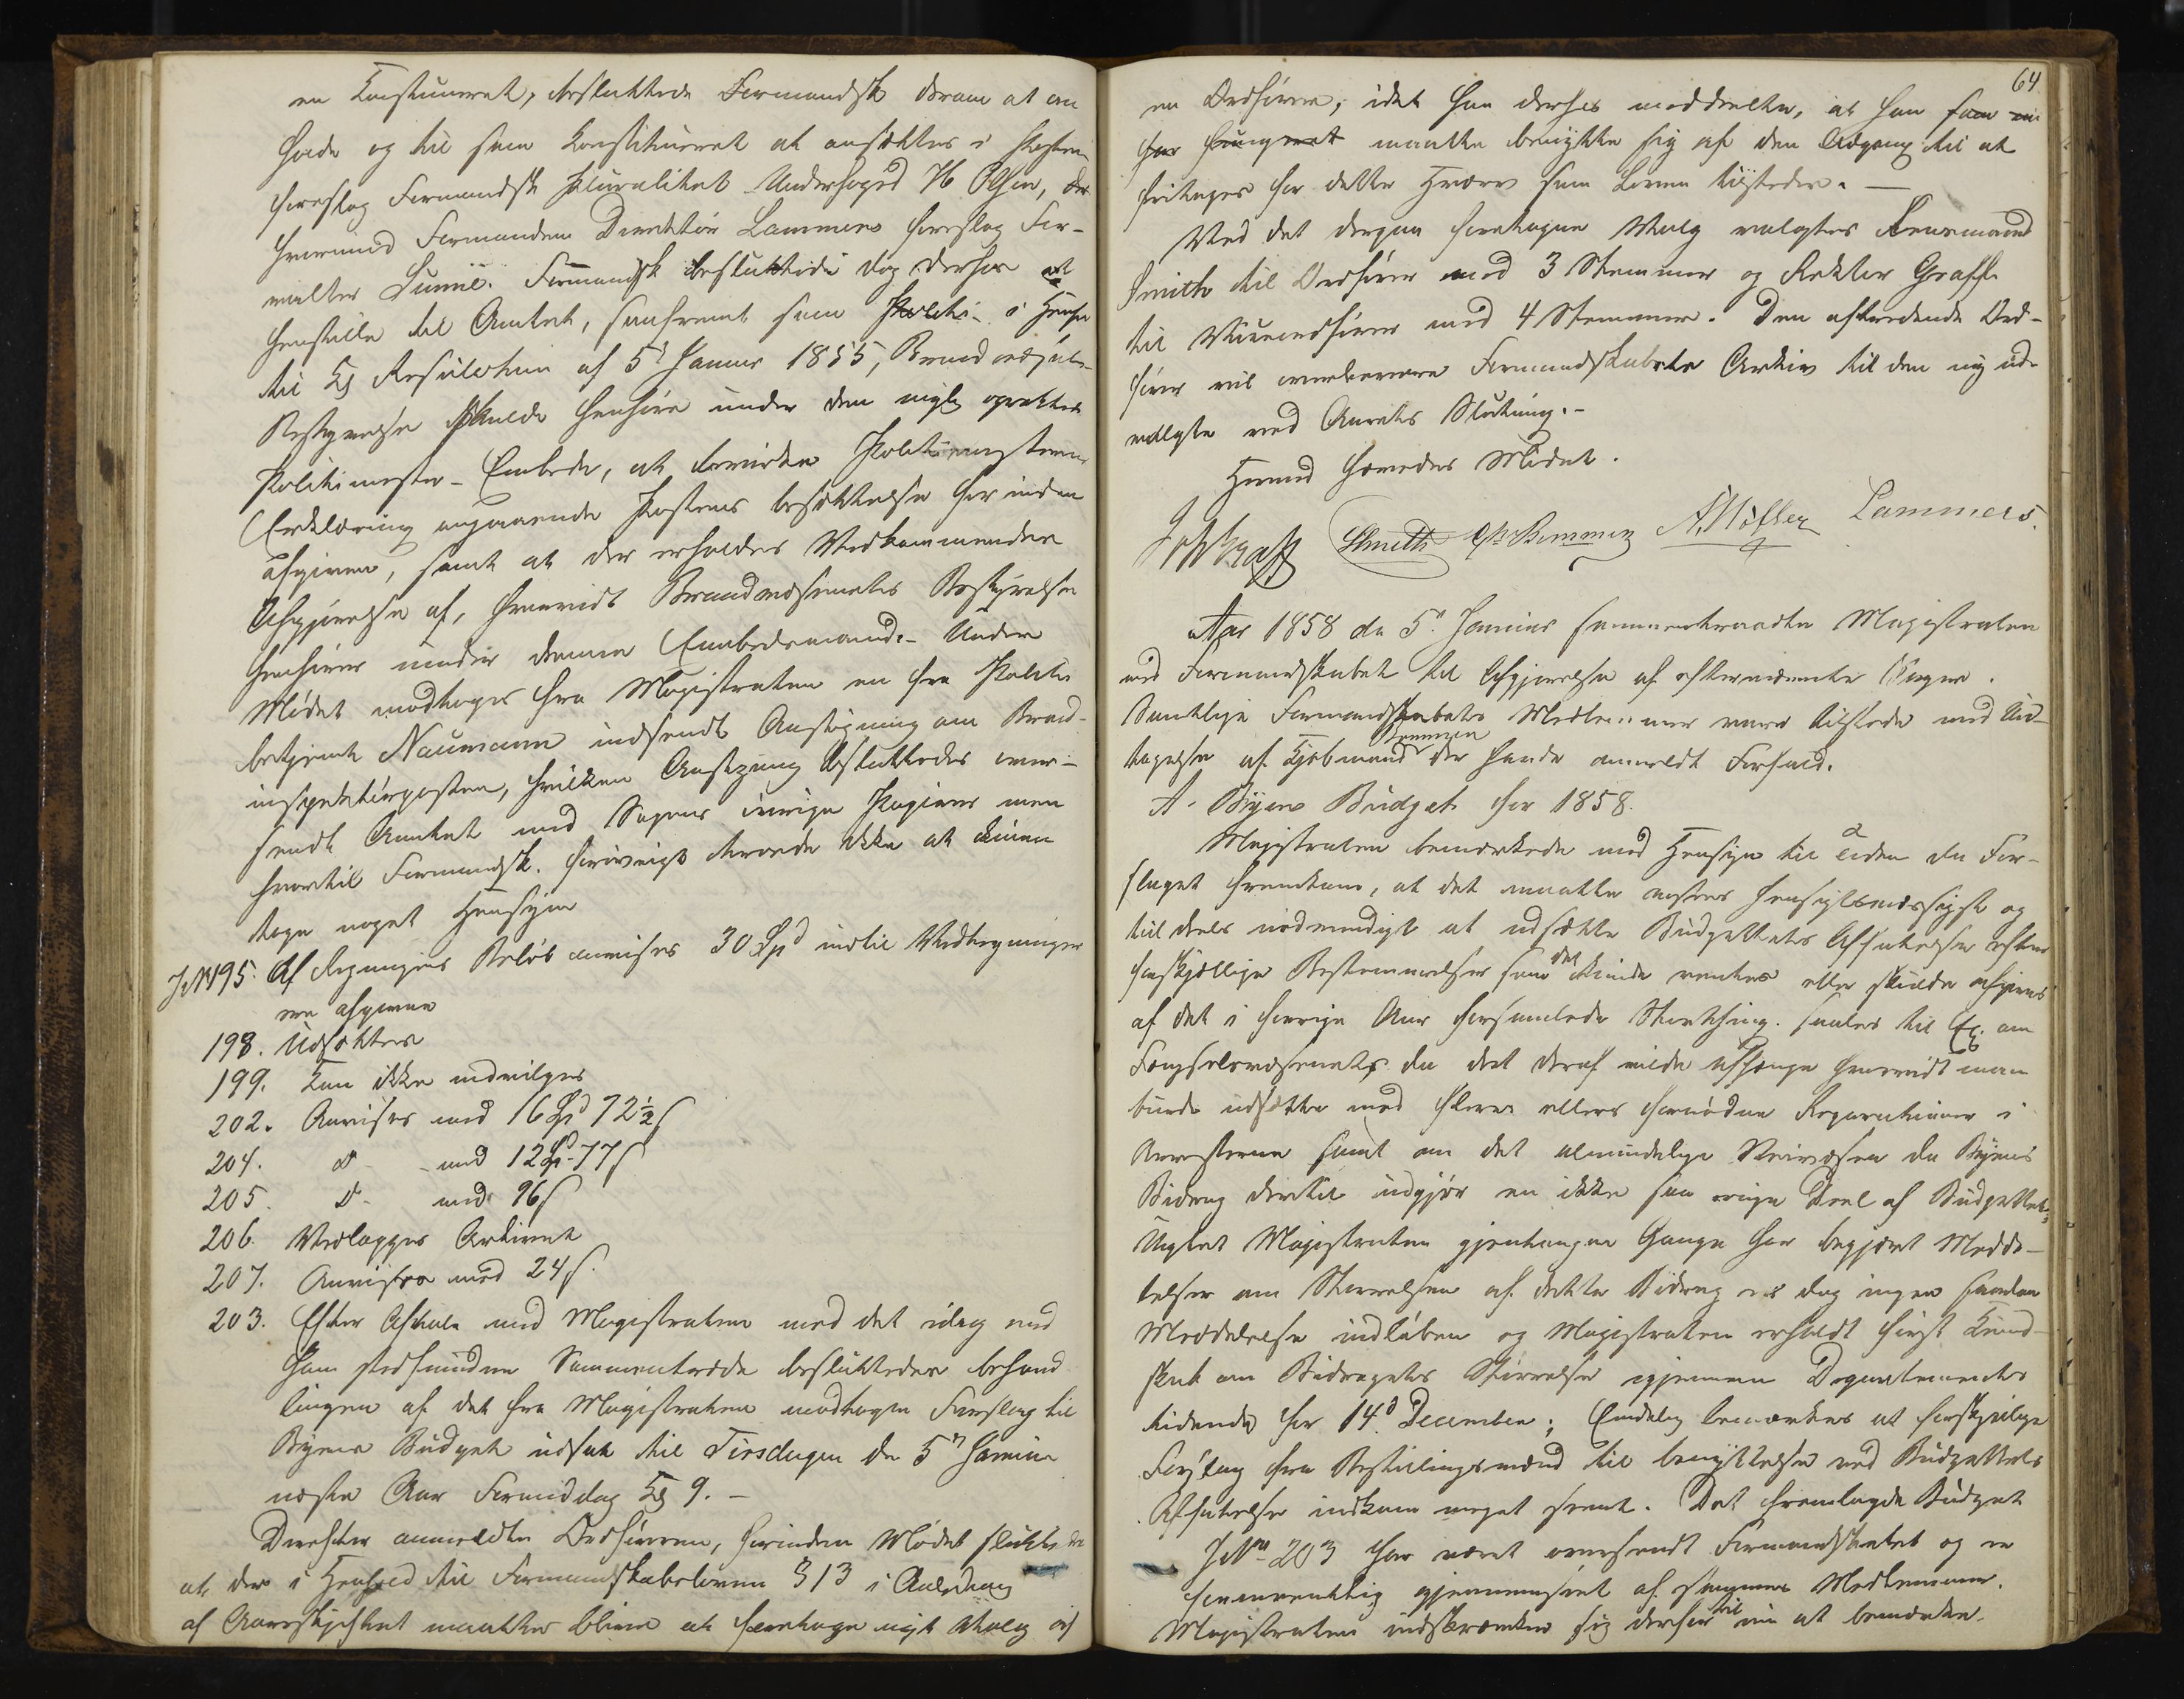 en Constitueret, besluttede Formandsk derom at an
holde og til som Constitueret at ansættes i Posten
foreslog Formandsk Pluralitet Underfoged H Olsen, der
hvorimod Formanden Direktør Lammers foreslog For-
valter Lunde. Formandsk besluttede dog derhos at
henstille til Amtet, saafremt som Politi- i Henh
til Kgl Resolution af 5t Januar 1855, Brandvæsenets
Bestyrelse skulde henhøre under den nylig oprettede
Politimester-Embede, at forinden Politimesterens
Erklæring angaaende Postens besættelse før inden
afgives, samt at der erholdes Vedkommendes
Afgjørelse af, hvorvidt Brandvæsenets Bestyrelse
henhører under denne Embedsmand.- Under
Mødet modtoges fra Magistraten en fra Politi
betjent Naumann indsendt Ansøgning om Brand-
inspektørposten, hvilken Ansøgning besluttedes over-
sendt Amtet med Sagens øvrige Papirer men
hvortil Formandsk. forøvrigt troede ikke at kunne
tage noget Hensyn
J N 195. Af Regningens Beløb anvises 30 Spd indtil Vedtegninger
ere afgivne
198. Udsættes
199. Kan ikke indvilges
202. Anvises med 16 Spd 72½ s
204. do - med 12 Spd 77 s
205. do - med 96 s
206. Vedlægges Arkivet
207. Anvises med 24 s.
203. Efter Aftale med Magistraten ved det idag med
ham stedfundne Sammentræde besluttedes behand
lingen af det fra Magistraten modtagne Forslag til
Byens Budget udsat til Tirsdagen den 5te Januar
næste Aar Formiddag Kl 9. -
Derefter anmeldte Ordføreren, forinden Mødet sluttedes
at der i Henhold til Formandskabsloven § 13 i Anledning
af Aarsskiftet maatte blive at foretage nyt Valg af
64
en Ordfører, idet han derhos meddeelte, at han som nu
har fungeret maatte benytte sig af den Adgang til at
fritages for dette Hverv som Loven tilsteder. -
Ved det derpaa foretagne Valg valgtes Kjøbmand
Smith til Ordfører med 3 Stemmer og Rektor Graff
til Viceordfører med 4 Stemmer. Den aftrædende Ord-
fører vil overlevere Formandskabets Arkiv til den ny ud-
valgte ved Aarets Slutning.-
Hermed hævedes Mødet.
Graff Smith Bommen A. Møller Lammers.
Aar 1858 den 5te Januar sammentraadte Magistraten
med Formandskabet til Afgjørelse af efternævnte Sager.
Samtlige Formandskabets Medlemmer vare tilstede med Und-
tagelse af Kjøbmand Bommen der havde anmeldt Forfald.
A. Byens Budget for 1858.
Magistraten bemærkede med Hensyn til Tiden da For-
slaget fremkom, at det maatte ansees hensigtsmæssigst og
tildeels nødvendigt at udsætte Budgettets Affattelse efter
forskjellige Bestemmelser som det kunde ventes eller skulde afgives
af det i forrige Aar forsamlede Storthing. saaledes til Ex. om
Fængselsvæsenet, da det deraf vilde afhænge hvorvidt man
burde udsætte med flere ellers fornødne Reparationer i
Arresterne samt om det almindelige Veivæsen da Byens
Bidrag dertil udgjør en ikke saa ringe Deel af Budgettet;
Uagtet Magistraten gjentagne Gange har begjært Medde-
lelser om Størrelsen af dette Bidrag er dog ingen saadan
Meddelelse indløben og Magistraten erholdt først Kund-
skab om Bidragets Størrelse igjennem Departements
tidende for 14de December; Endelig bemærkes at forskjellige
Forslag fra Bestillingsmænd til benyttelse ved Budgettets
Affattelse indkom meget seent. Det fremlagde Budget
J No 203 har været oversendt Formandskabet og er
formentlig gjennemseet af sammes Medlemmer.
Magistraten indskrænker sig derfor til nu at bemærke